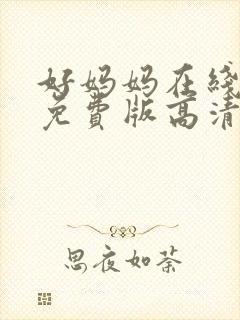 好妈妈在线
免費版高清
思夜如荼